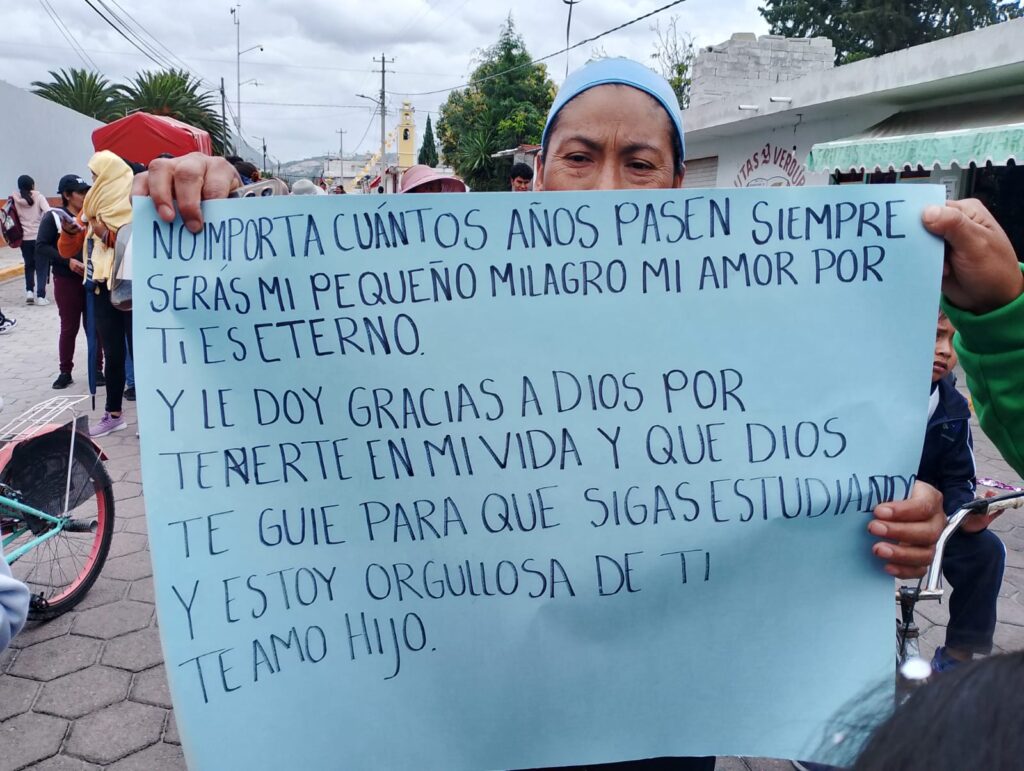 NO IMPORTA CUÁNTOS AÑOS PASEN SIEMPRE
SERÁS MI PEQUEÑO MILAGRO MI AMOR POR
TI ES ETERNO.
Y LE DOY GRACIAS A DIOS POR
TENERTE EN MI VIDA Y QUE DIOS
TE GUIE PARA QUE SIGAS ESTUDIANDO
Y ESTOY ORGULLOSA DE TI
TE AMO HIJO.
UTAS Y VERDUR